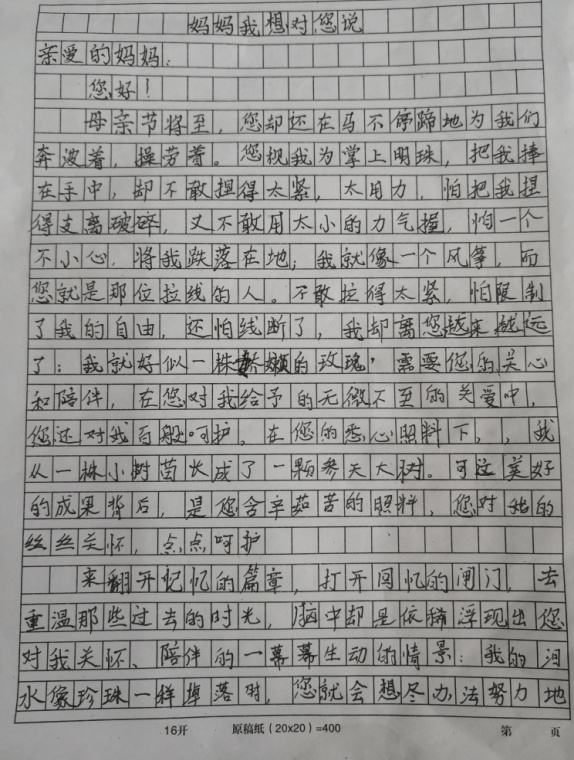 妈妈我想对您说
亲爱的妈妈：
您好！
母亲节将至，您却还在马不停蹄地为我们
奔波着，操劳着。您视我为掌上明珠，把我捧
在手中，却不敢捏得太紧，太用力，怕把我捏
得支离破碎，又不敢用太小的力气握，怕一个
不小心，将我跌落在地；我就像一个风筝，而
您就是那位拉线的人。不敢拉得太紧，怕限制
了我的自由，还怕线断了，我却离您越来越远
了；我就好似一株娇嫩的玫瑰，需要您的关心
和陪伴，在您对我给予的无微不至的关爱中，
您还对我百般呵护。在您的悉心照料下，，我
从一株小树苗长成了一颗参天大树。可这美好
的成果背后，是您含辛茹苦的照料，您对我的
丝丝关怀，点点呵护
来翻开记忆的篇章，打开回忆的闸门，去
重温那些过去的时光，脑中却是依稀浮现出您
对我关怀、陪伴的一幕幕生动的情景：我的泪
水像珍珠一样掉落时，您就会想尽办法努力地
16开 原稿纸（20×20）=400 第 页